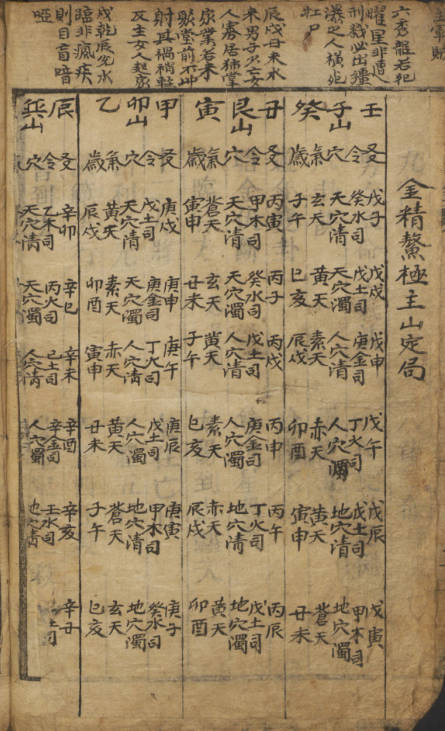 六秀龍若祀
曜星非遭人
刑戮必出獲
瀑之人橫死
牡尸
辰戌丑未水
來男子少亡女
人寡居歸掌
家業若未
聚堂前不出
射耳禍稍輕
及主女人起家
戌乾辰兌水
臨非瘋疾
則目盲喑
啞
金精鰲極主山定局
壬 受 戊子 戊戌 戊申 戊午 戊辰 戊寅
令 癸水司 戊土司 庚金司 丁火司 戊土司 甲木司
子山 穴 天穴清 天穴濁 人穴清 人穴濁 地穴清 地穴濁
氣 玄天 黃天 素天 赤天 黃天 蒼天
癸 歲 子午 巳亥 辰戌 卯酉 寅申 丑未
丑 受 丙寅 丙子 丙戌 丙申 丙辰
令 甲木司 癸水司 戊土司 庚金司 丁火司 戊土司
艮山 穴 天穴清 天穴濁 人穴清 人穴濁 地穴清 地穴濁
氣 蒼天 玄天 黃天 素天 赤天 黃天
寅 歲 寅申 丑未 子午 巳亥 辰戌 卯酉
甲 受 庚戌 庚申 庚午 庚辰 庚寅 庚子
令 戊土司 庚金司 丁火司 戊土司 甲木司 癸水司
卯山 穴 天穴清 天穴濁 人穴清 人穴濁 地穴清 地穴濁
氣 黃天 素天 赤天 黃天 蒼天 玄天
乙 歲 辰戌 卯酉 寅申 丑未 子午 巳亥
辰 受 辛卯 辛巳 辛未 辛酉 辛亥 辛丑
令 乙木司 丙火司 己土司 辛金司 壬水司 土司
巽山 穴 天穴清 天穴濁 人穴清 人穴濁 地穴清